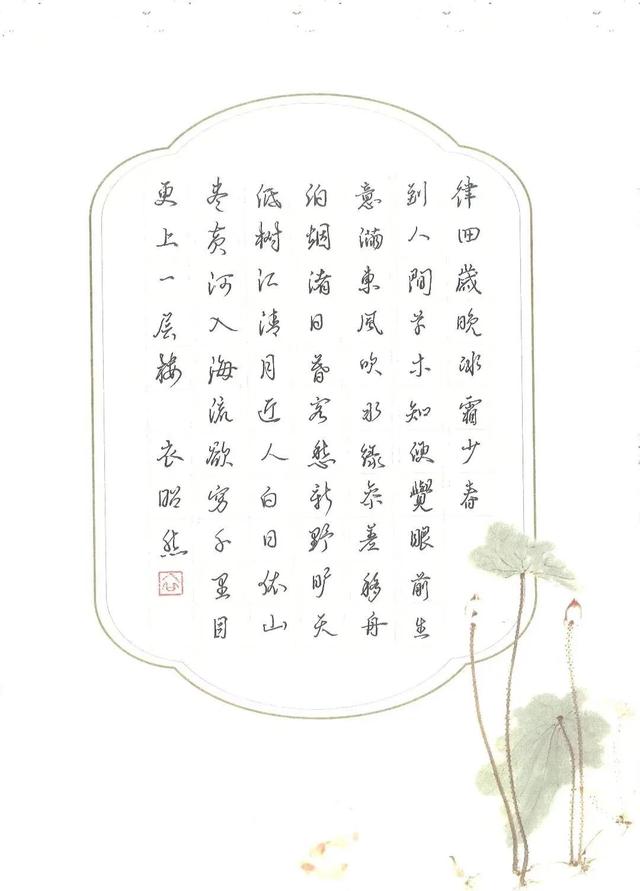 律回歲晚冰霜少春
到人間草木知便覺眼前生
意滿東風吹水綠參差移舟
泊烟渚日暮客愁新野旷天
低树江清月近人白日依山
盡黄河入海流欲穷千里目
更上一层楼 衣昭然